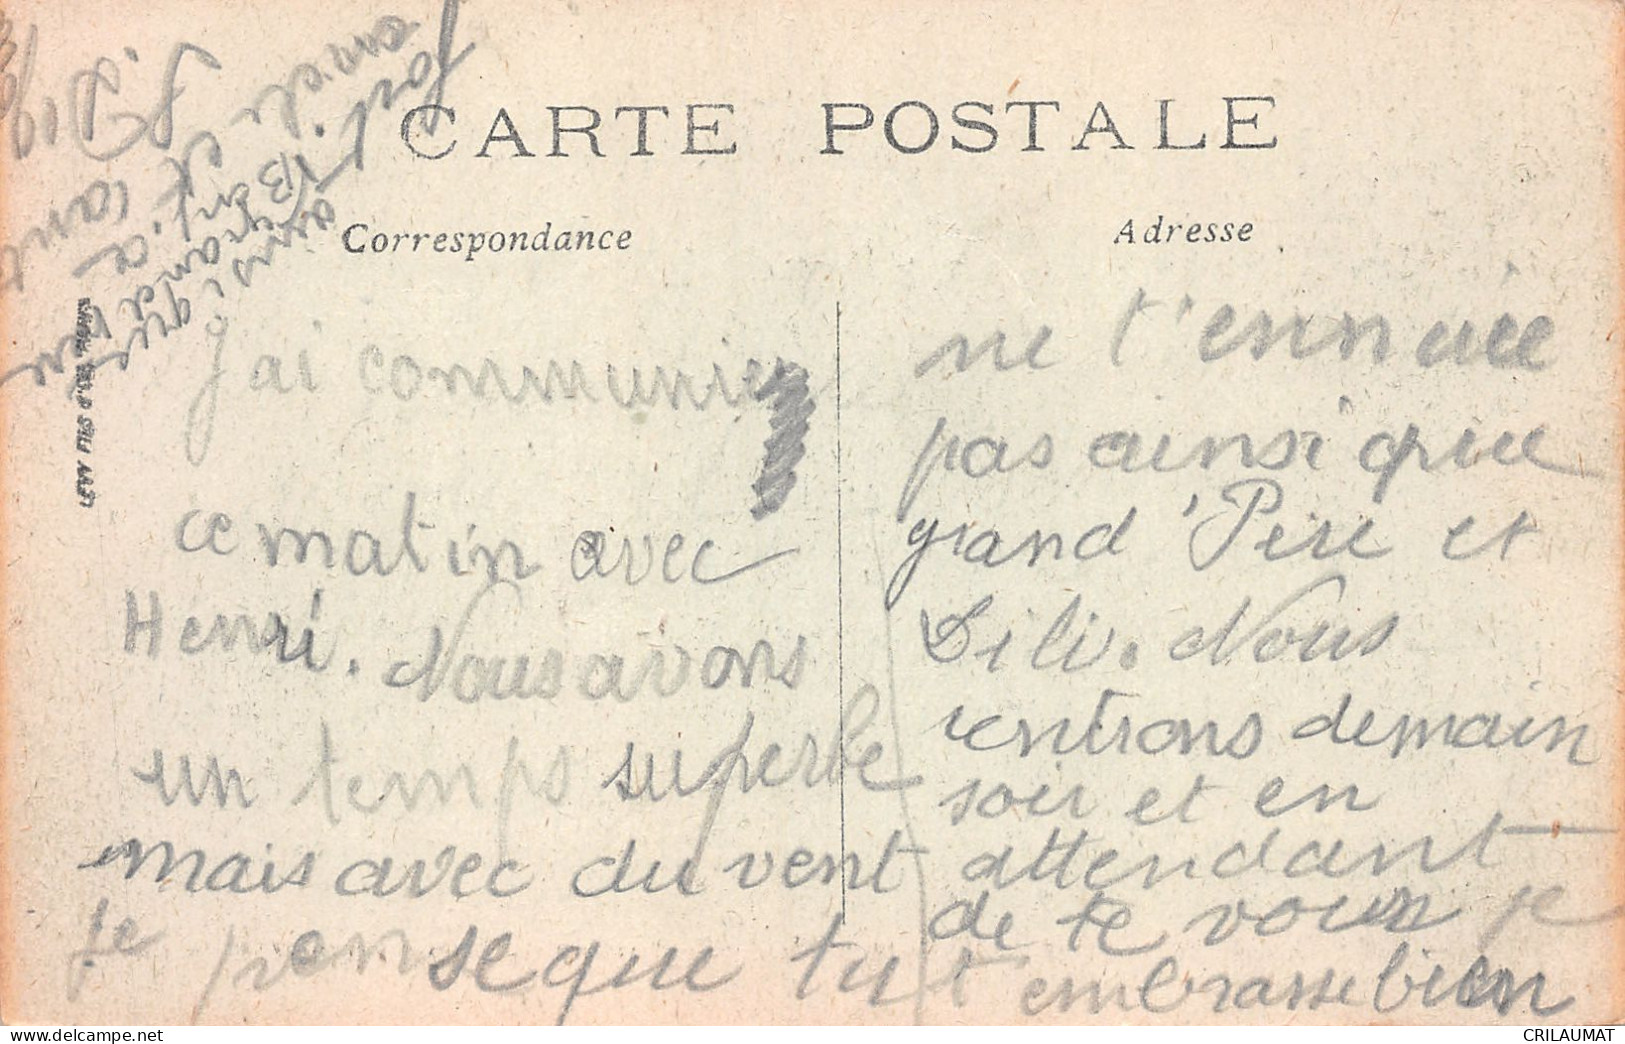 CARTE POSTALE
Correspondance
Adresse
J'ai communier
ce matin avec
Henri. Nous avons
un temps superbe
mais avec du vent
je pense que tu
ne t'ennuiee
pas ainsi que
grand 'Père et
Lili. Nous
rentrons demain
soir et en
attendant
de te voir je
t'embrasse bien
fort
ainsi que
grand
CRILAUMAT